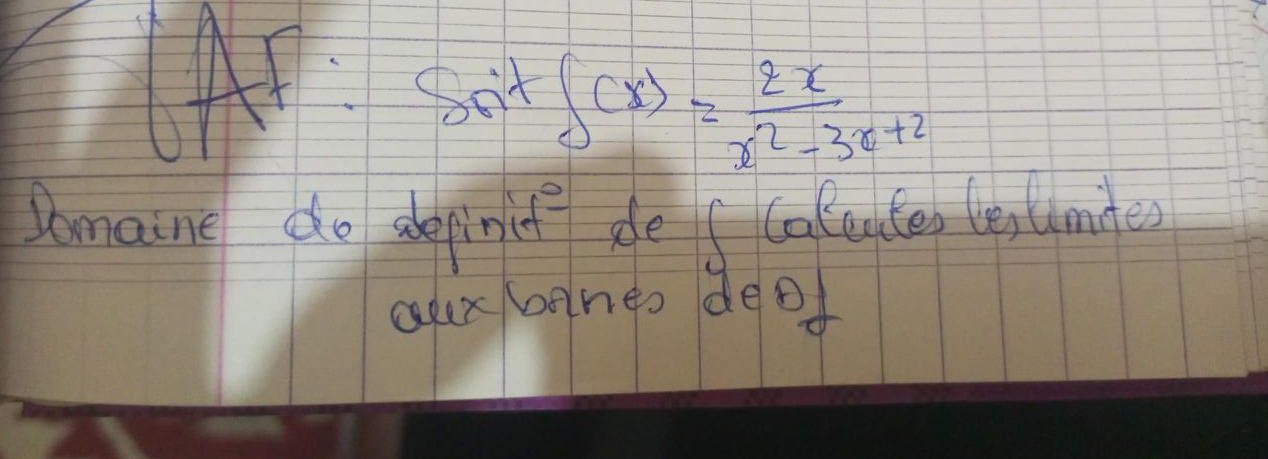 AF : Soit f(x) = 2x / x² - 3x + 2
Domaine de definit° de f Calcules les limites
aux bornes de Df